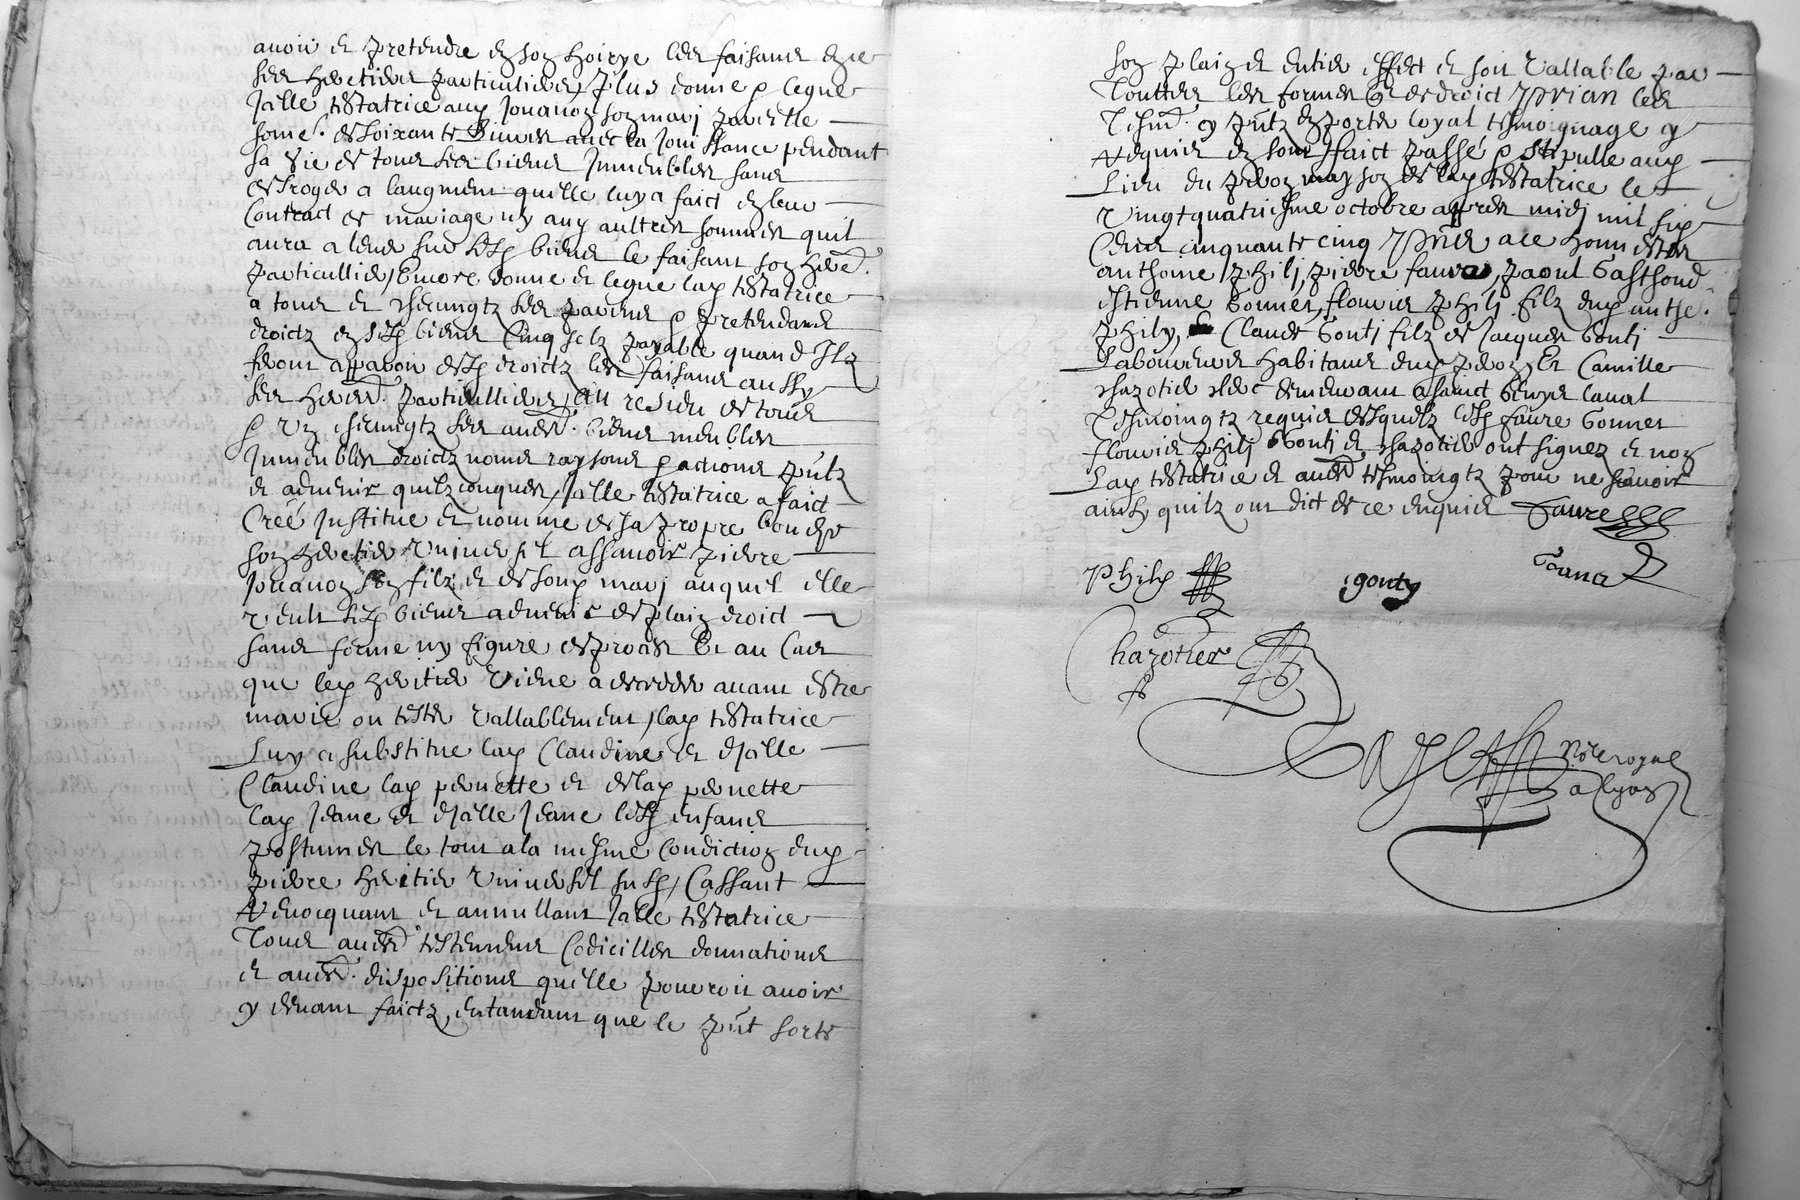 avoir et pretendre en son hoirye les faisant en ce
ses heretiers particuliers, Plus donne & legue
Jcelle testatrice aud Jouanon son mary par elle
some. de soixante livres avec la jouissance pendant
sa vie de tous ses biens Jmmeubles sans
desroger a laugment quelle luy a faict en leur
Contract de mariage ny aux aultres sommes quil
aura a lever sur sesd biens le faisant son hered.
particullier, Encore donne et legue lad testatrice
a tous et chacungtz ses parens & pretendans
droictz en sesd biens Cinq solz payable quand Jlz
feront apparoir desd droictz les faisans aussy
ses hered. particulliers, Au residu de tous
& Ung chacungtz ses aued. biens meubles
Jmmeubles droictz noms raysons & actions pntz
et advenir quelzconques, Jcelle testatrice a faict
Creé Jnstitue et nomme de sa propre bouche
son heretier Universel assavoir pierre
Jouanon son filz et de soud mary auquel elle
veult sesd biens advenir de plain droict
sans forme ny figure de proces Et au Cas
que led heritier viene a deceder avant estre
marie ou tester vallablement, lad testatrice
Luy a substitue lad Claudine et a Jcelle
Claudine lad pernette et a lad pernette
lad Jeane et a Jcelle Jeane lesd enfans
postumes le tout a la mesme Condiction dud
pierre heritier Universel susd, Cassant
Revocquant et annullant Jcelle testatrice
Tous aued testemens Codicilles donnations
et aued. dispositions quelle pourroit avoir
cy devant faictz, entandant que le pnt sorte
son plain et entier effect et soit vallable par
Touttes les formes de droict priant les
Tesm. cy pntz en porter loyal tesmoignage cy
Requier en sont faict passé & stipulle aud
Lieu du peron mayson de lad testatrice le
Vingtquatriesme octobre appres midi mil six
Cens cinquante cinq pntes a ce honnestes
anthoine phili, pierre faure, paoul Gasthond
estienne Gonnet, flouris phili filz dud anthe.
phily, Claude Gonti filz de Jacques Gonti
Laboureurs habitans dud peron, Et Camille
chazotier clerc demeurant a sainct genys laval
Tesmoingtz requis desquelz lesd faure Gonnet
flouris phili Gonti et chazotier ont signez et non
Lad testatrice et aued tesmoingtz pour ne sçavoir
ainsy quilz ont dict de ce enquis Faure
Phily gonty Gounet
Chazotier
Note royal
a lyon